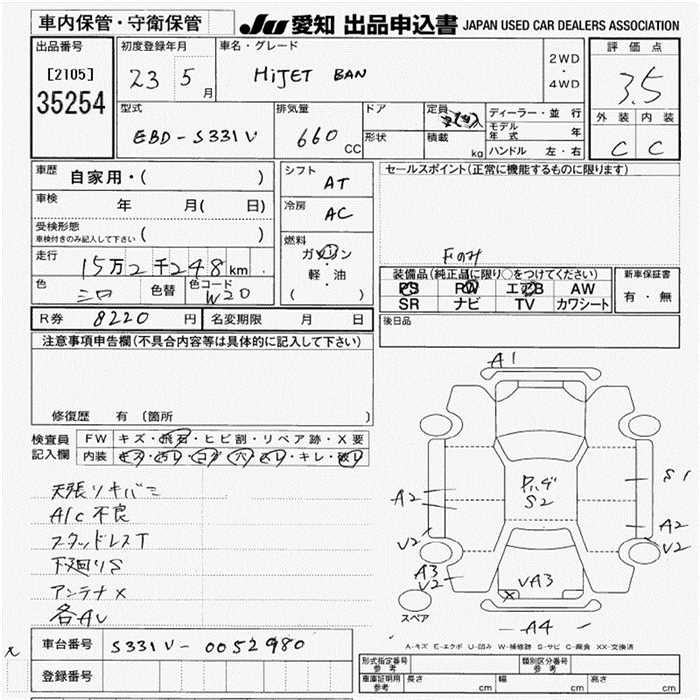 車内保管・守衛保管
JU 愛知 出品申込書 JAPAN USED CAR DEALERS ASSOCIATION
出品番号
[2105]
35254
初度登録年月
23 5 月
車名・グレード
HiJET BAN
2WD
・
4WD
評価点
3.5
外装 内装
C C
型式
EBD-S331V
排気量
660 CC
ドア
形状
定員
積載 kg
ディーラー・並行
モデル年式 年
ハンドル 左・右
車歴
自家用・( )
車検 年 月( 日)
受検形態
車検付きのみ記入して下さい ( )
走行
15万2千248km
色
シロ
色替
色コード
W20
シフト
AT
冷房
AC
燃料
ガソリン
・
軽・油
( )
セールスポイント(正常に機能するものに限ります)
Fのみ
装備品(純正品に限り○をつけてください)
PS PW エアB AW
SR ナビ TV カワシート
新車保証書
有・無
R券 8220 円
名変期限 月 日
後日品
注意事項申告欄(不具合内容等は具体的に記入して下さい)
修復歴 有 (箇所 )
検査員記入欄
FW キズ・飛石・ヒビ割・リペア跡・X要
内装 キズ・汚レ・コゲ・穴・スレ・キレ・破レ
A/C 不良
スタッドレスT
下廻りS
アンテナ×
各AU
A1
S1
A2
U2
A3
U2
S2
A2
U2
UA3
×
A4
スペア
A-キズ E-エクボ U-凹み W-補修跡 S-サビ C-腐食 XX-交換済
車台番号 S331V-0052980
登録番号
形式指定番号
参考
類別区分番号
参考
車庫証明用
参考
長さ cm
幅 cm
高さ cm